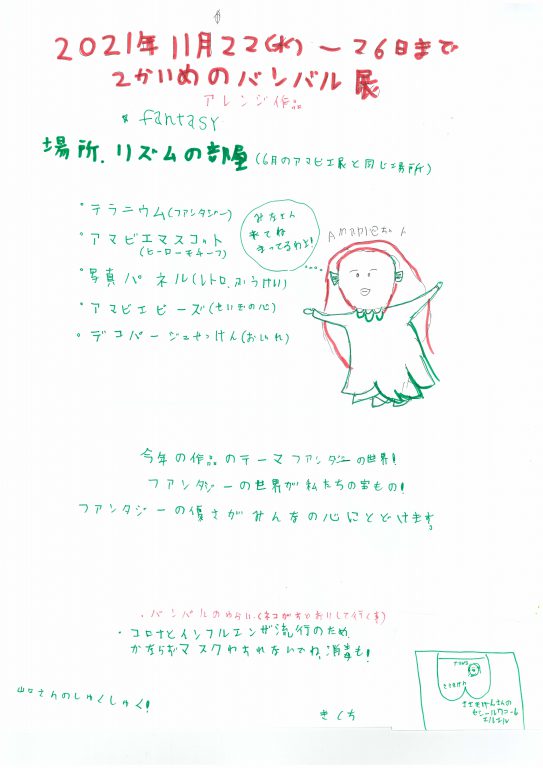 2021年11月22(水)～26日まで
2かいめのバンバル展
アレンジ作品
fantasy
場所.リズムの部屋(6月のアマビエ展と同じ場所)
・テラニウム(ファンタジー)
・アマビエマスコット
(ヒーローモチーフ)
・写真パネル(レトロ,ふうけい)
・アマビエビーズ(せいぎの心)
・デコパージュせっけん(おしゃれ)
みなさん
来てね
まってるわよ!
今年の作品のテーマファンタジーの世界!
ファンタジーの世界が私たちの宝もの!
ファンタジーの優さがみんなの心にとどけます。
・コロナとインフルエンザ流行のため、
かならずマスクわすれないでね、消毒も!
きくち